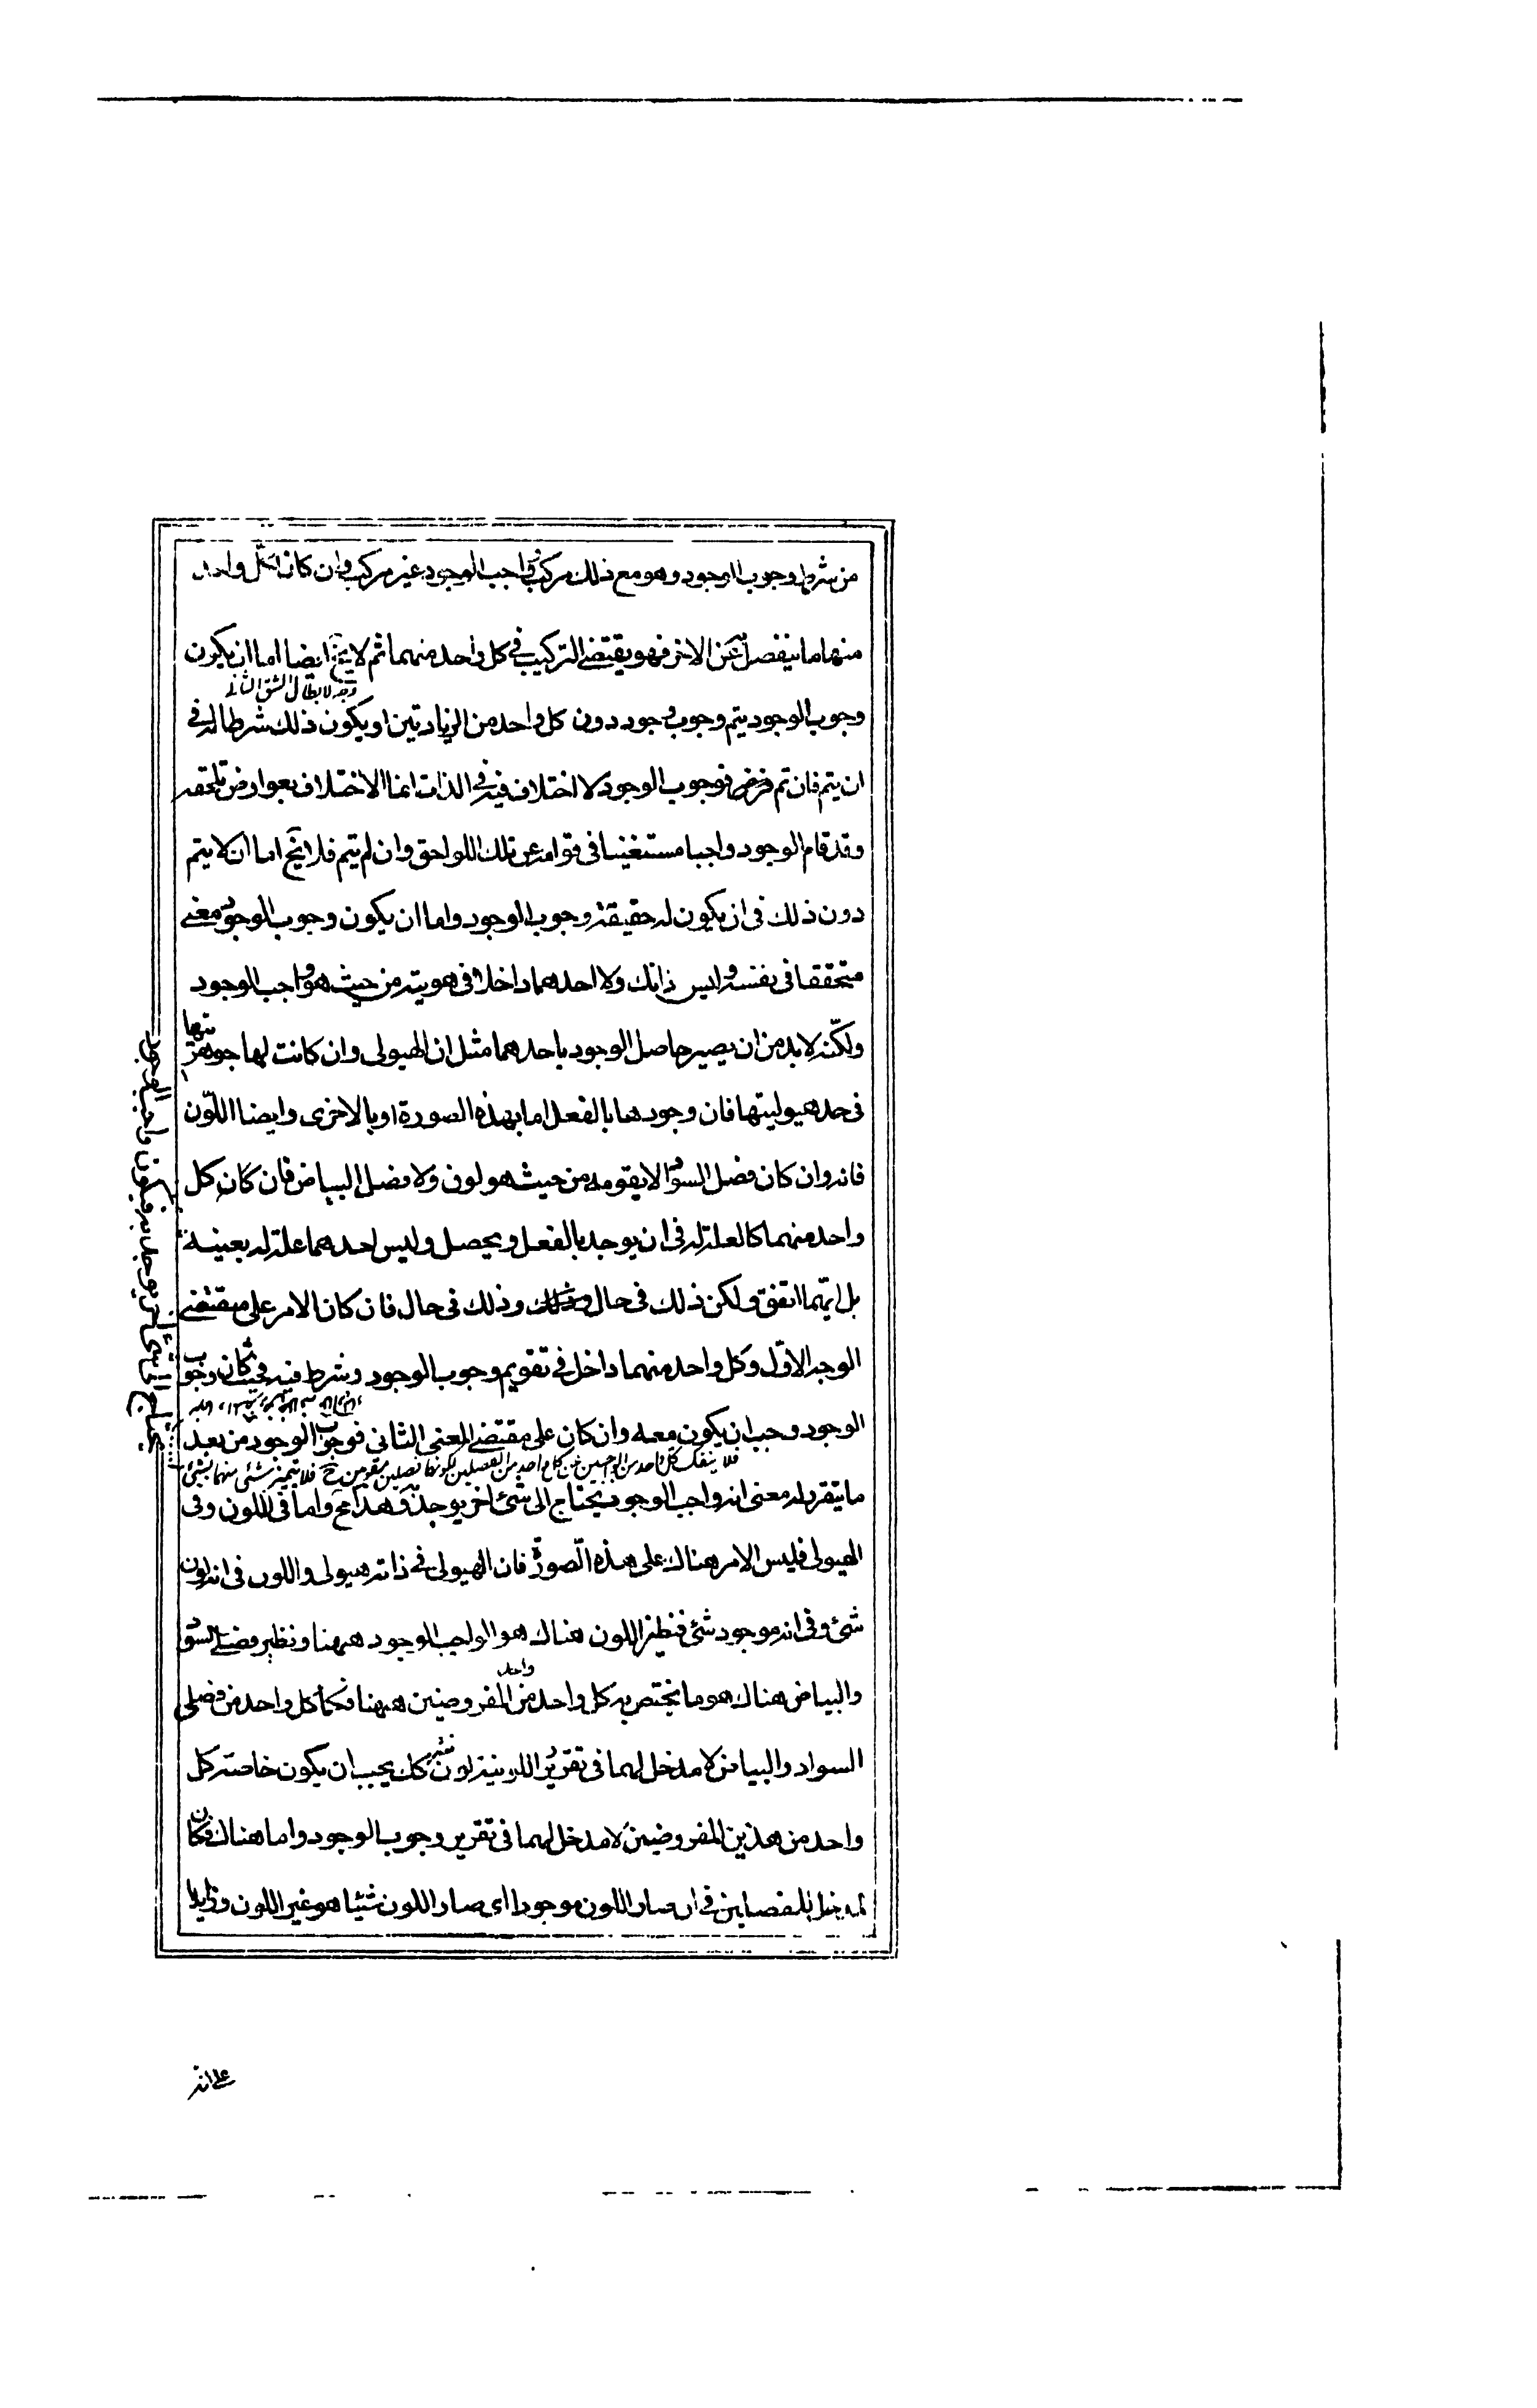 من شرط وجوب الوجود وهو مع ذلك مركب فواجب الوجود غير مركب وان كان لكل واحد
منهما ما ينفصل به عن الاخر فهو يقتضى التركيب فى كل واحد منهما ثم لا يخ ايضا اما ان يكون
وجه لابطال الشق الثانى
وجوب الوجود يتم وجوب وجود دون كل واحد من الزيادتين او يكون ذلك شرطا له فى
ان يتم فان تم فوجوب الوجود لا اختلاف فيه فى الذات انما الاختلاف بعوارض تلحقه
وقد قام الوجود واجبا مستغنيا فى قوامه عن تلك اللواحق وان لم يتم فلا يخ اما ان لا يتم
دون ذلك فى ان يكون له حقيقة وجوب الوجود واما ان يكون وجوب الوجود معنى
متحققا فى نفسه وليس ذانك ولا احدهما داخلا فى هويته من حيث هو واجب الوجود
ولكنه لا بد من ان يصير حاصل الوجود باحدهما مثل ان الهيولى وان كانت لها جوهريتها
فى حد هيوليتها فان وجودها بالفعل اما بهذه الصورة او بالاخرى وايضا اللون
فانه وان كان فصل السواد لا يقومه من حيث هو لون ولا فصل البياض فان كان كل
واحد منهما كالعلة له فى ان يوجد بالفعل ويحصل وليس احدهما علة له بعينه
بل ايتهما اتفق ولكن ذلك فى حال وذلك فى حال فان كان الامر على مقتضى
الوجه الاول وكل واحد منهما داخل فى تقويم وجوب الوجود وشرط فيه فحيث كان وجوب
الوجود وجب ان يكون معه وان كان على مقتضى المعنى الثانى فوجوب الوجود من بعد
فلا ينفك كل واحد من الواجبين عن كل واحد من الفصلين لكونهما فصلين مقومين ح فلا يتميز شئ منهما بشئ
ما يتقرر له معنى انه واجب الوجود يحتاج الى شئ اخر يوجد به وهذا مح واما فى اللون وفى
الهيولى فليس الامر هناك على هذه الصورة فان الهيولى فى ذاته هيولى واللون فى انه لون
شئ وفى انه موجود شئ فنظير اللون هناك هو الواجب الوجود ههنا ونظير فصلى السواد
والبياض هناك هو ما يختص به كل واحد واحد من المفروضين ههنا فكما كل واحد من فصلى
السواد والبياض لا مدخل لهما فى تقرير اللونية كك يجب ان يكون خاصة كل
واحد من هذين المفروضين لا مدخل لهما فى تقرير وجوب الوجود واما هناك فكان
المدخل للفصلين فى ان صار اللون موجودا اى صار اللون شيئا هو غير اللون وزايدا
على انه
يحتاج الى شئ اخر يوجد به فيكون واجب الوجود